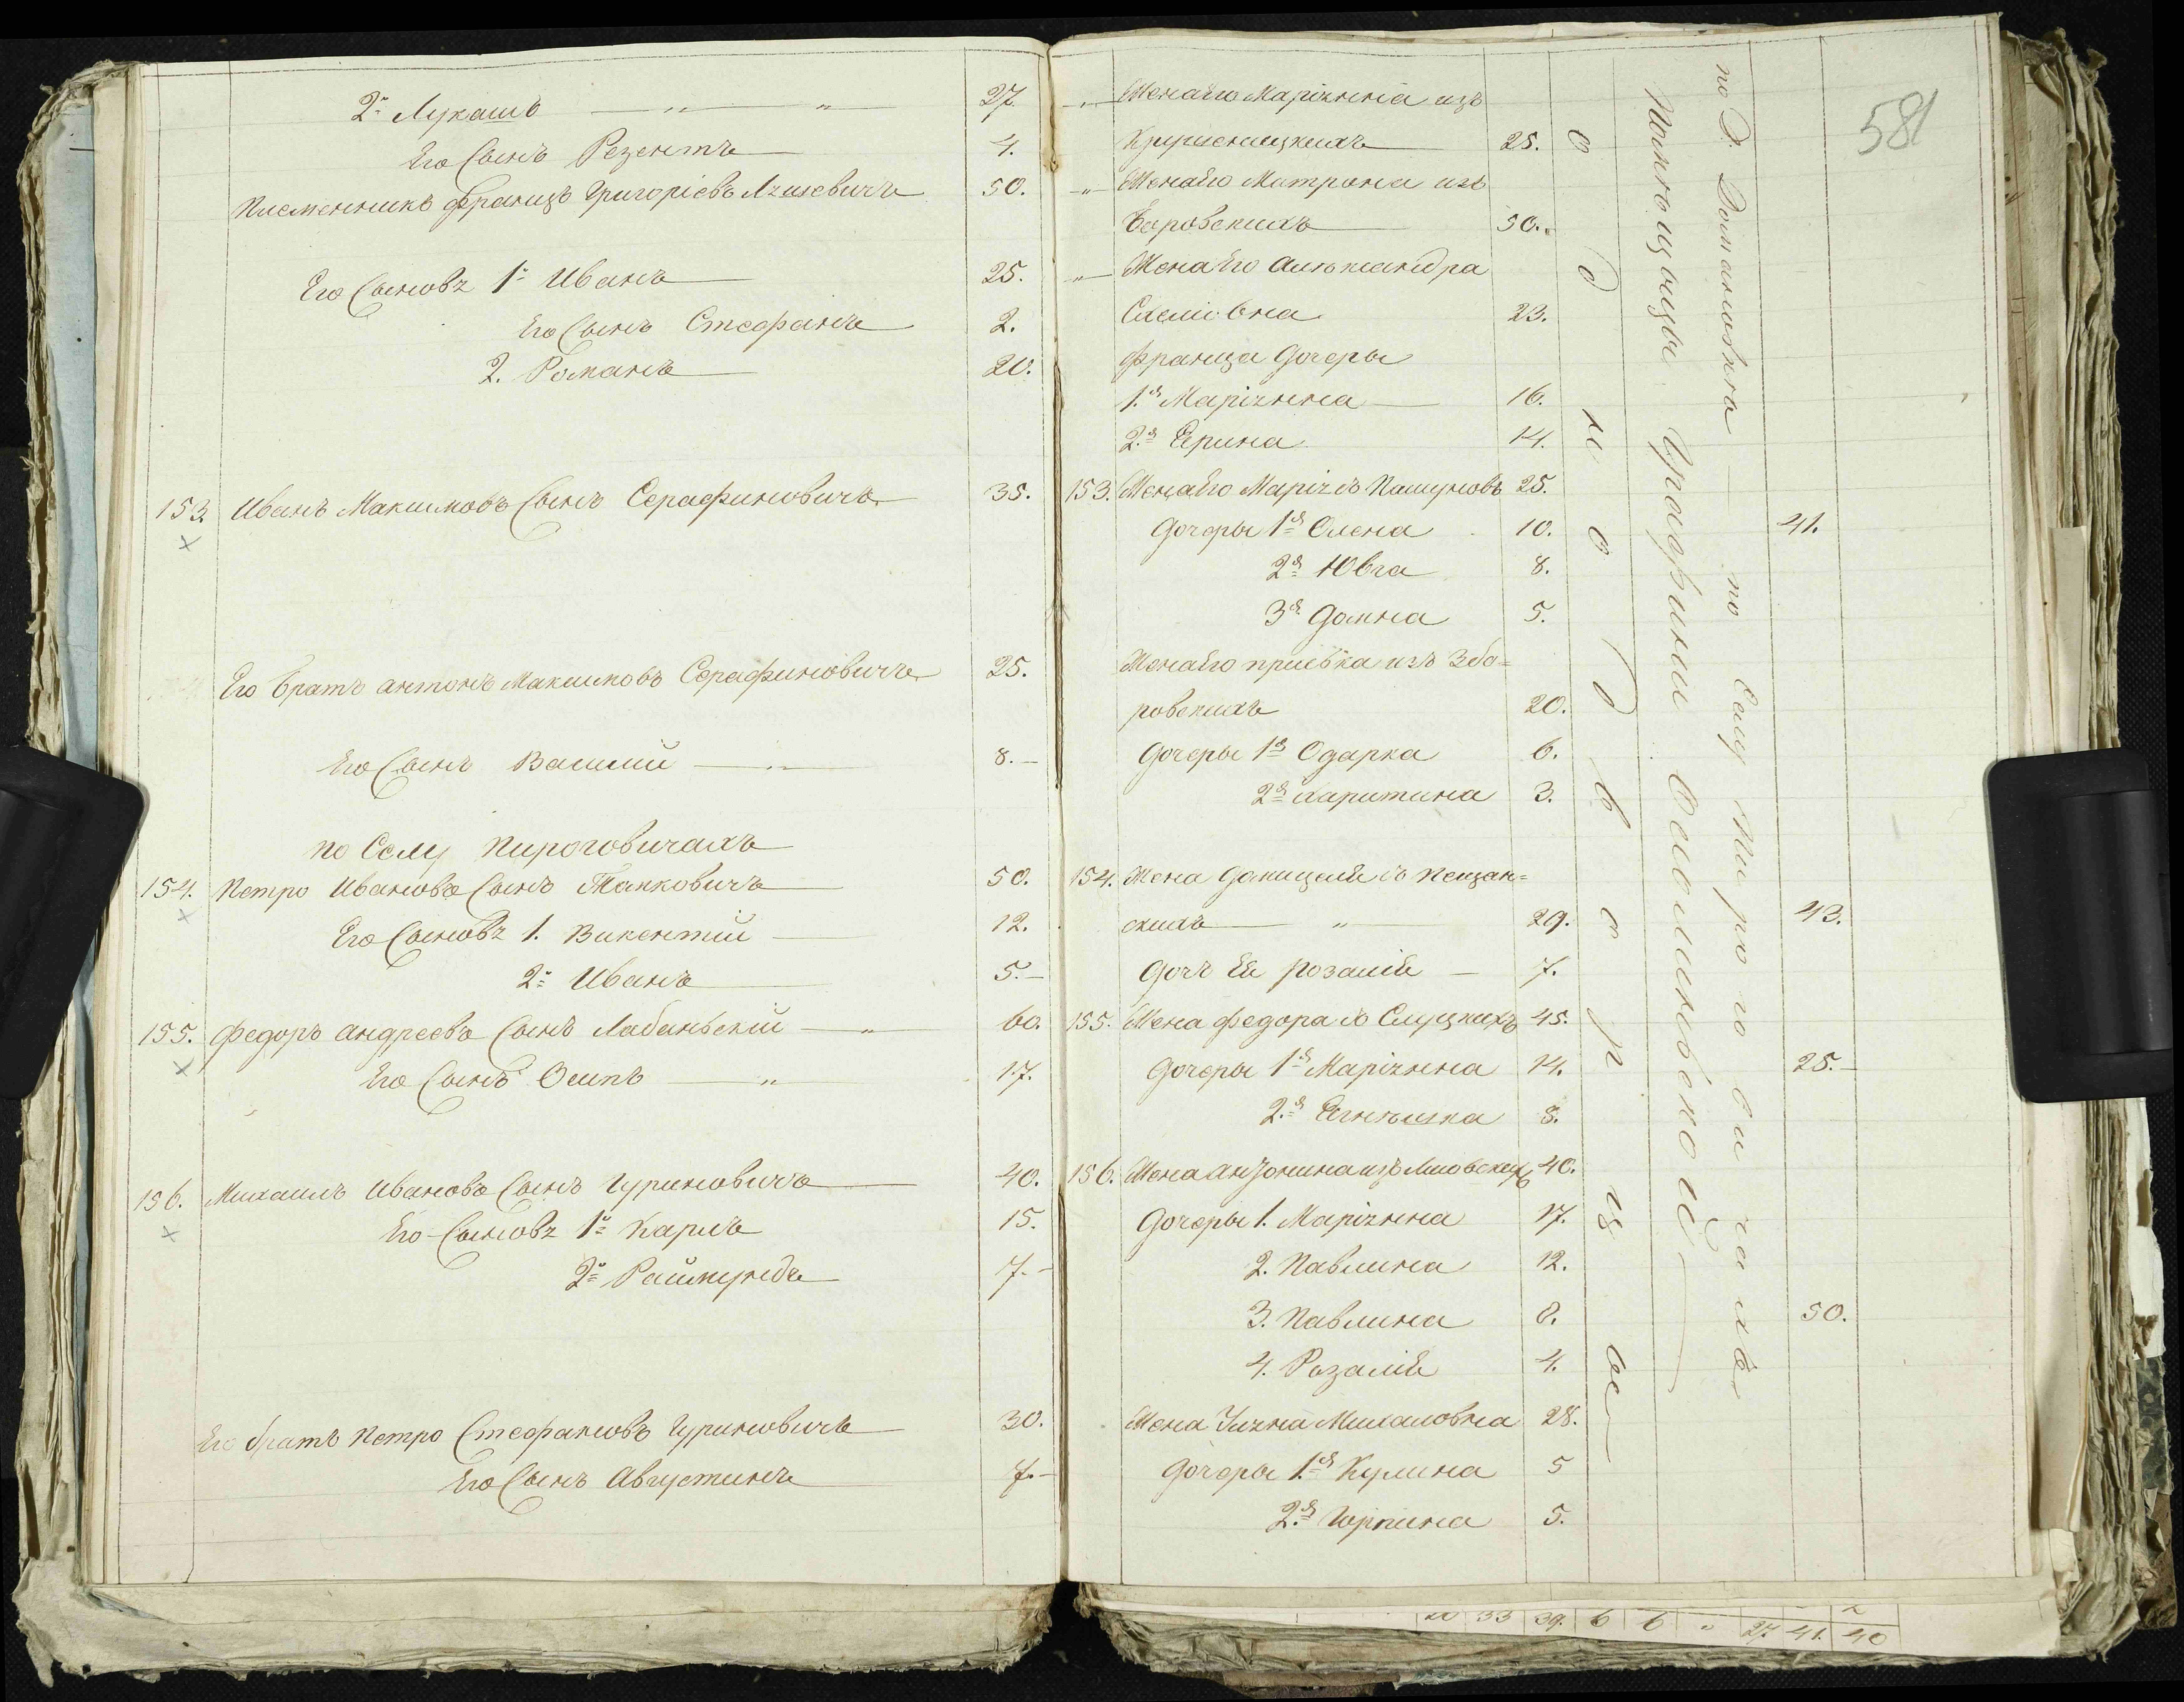 2й Лукашъ — „ — „ 27.
Его Сынъ Резентъ 4.
Племенникъ Францъ Григоріевъ 50.
Его Сыновъ 1й Иванъ 25.
Его Сынъ Стефанъ 2.
2. Романъ 20.
153. Иванъ Максимовъ Сынъ Серафиновичъ 35.
Его братъ антонъ Максимовъ Серафиновичъ 25.
Его Сынъ Василий 8.
по Селу Пироговичахъ
154. Петро Ивановъ Сынъ Танковичъ 50.
Его Сыновъ 1. Викентий 12.
2й Иванъ 5.
155. Федоръ андреевъ Сынъ Лабаньский — „ 60.
Его Сынъ Осипъ „ 17.
156. Михаилъ Ивановъ Сынъ Гуриновичъ 40.
Его Сыновъ 1й Карлъ 15.
2й Раймундъ 7.
Его братъ Петро Стефановъ Гуриновичъ 30.
Его Сынъ Августинъ 7.
581
„ Жена Его Маріянна изъ
25.
„ Жена Его Матрона изъ
Боровскихъ 50.
„ Жена Его александра
23.
Франца дочеры
1я Маріянна 16.
2я Ерина 14.
153. Жена Его Марія съ Пашуновъ 25.
дочеры 1я Олена 10. 41.
2я Югва 8.
3я Домна 5.
Жена Его изъ Збо=
ровскихъ 20.
дочеры 1я Одарка 6.
2я Харитина 3.
154. Жена съ Пещан=
скихъ „ 29. 43.
дочь Ея розалія 7.
155. Жена федора съ Слуцкихъ 45.
дочеры 1я Маріянна 14. 25.
2я Егнѣшка 8.
156. Жена антонина изъ 40.
дочеры 1. Маріянна 17.
2. Павлина 12.
3. Павлина 8. 50.
4. Розалія 4.
Жена Михаловна 28.
дочеры 1я Кулина 5
2я Юрпина 5.
Однодворцы
Помѣщицы Графини
по Д. по Селу Пироговичахъ
20 33 39. 6 6 „ 27. 41. 40